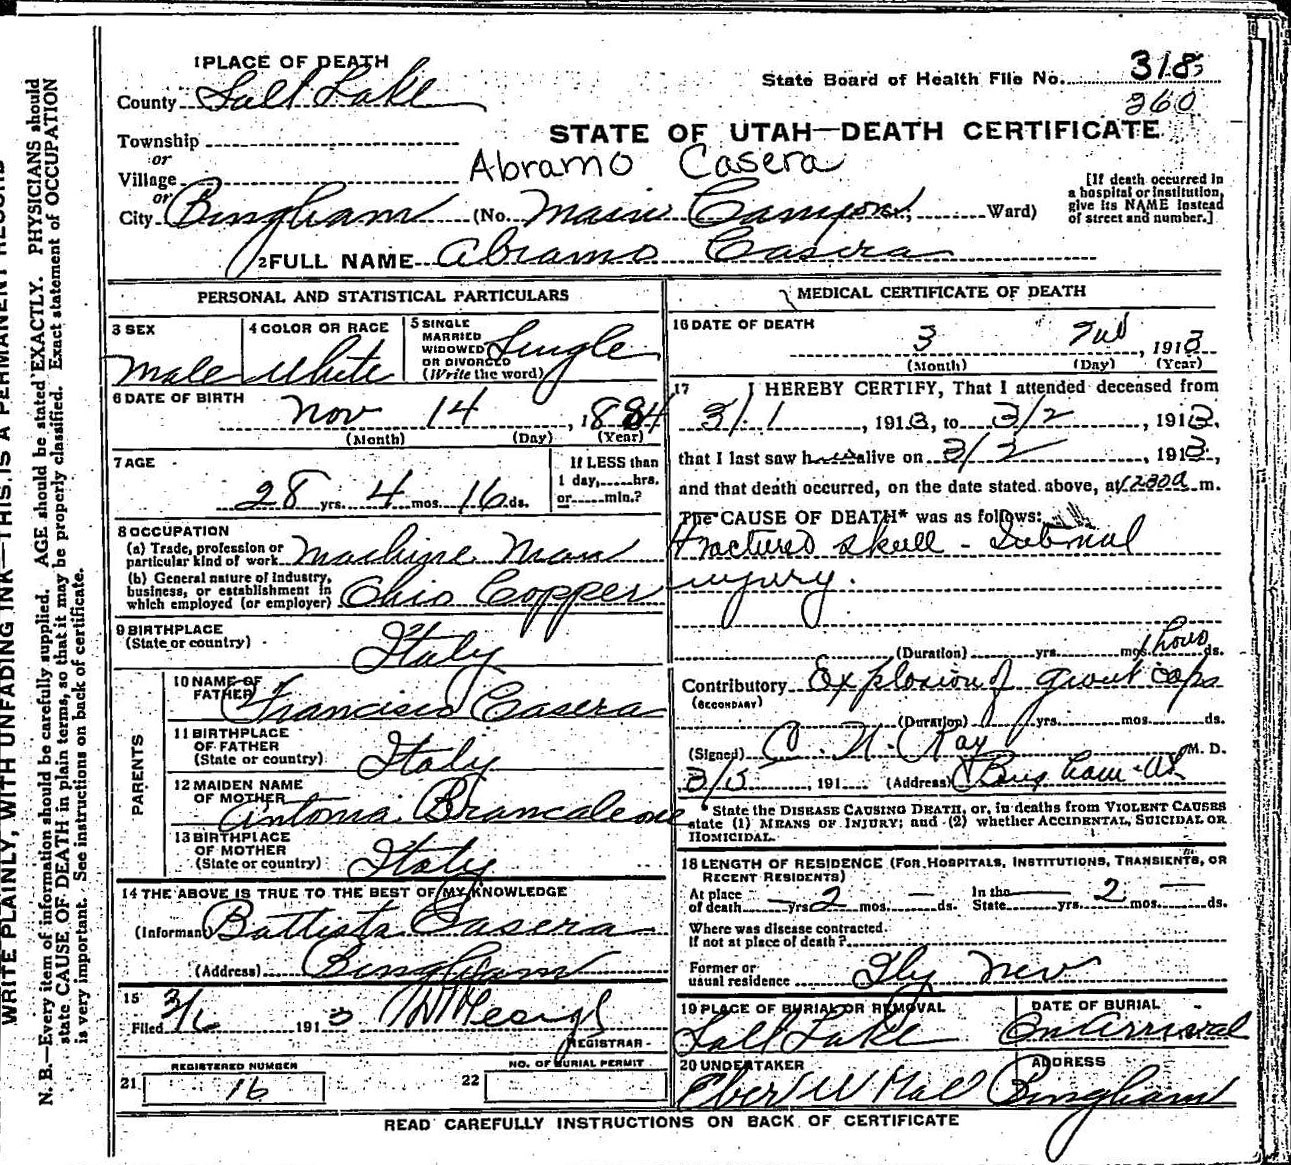 WRITE PLAINLY, WITH UNFADING INK—THIS IS A PERMANENT RECORD
N. B.—Every item of information should be carefully supplied. AGE should be stated EXACTLY. PHYSICIANS should
state CAUSE OF DEATH in plain terms, so that it may be properly classified. Exact statement of OCCUPATION
is very important. See instructions on back of certificate.
1 PLACE OF DEATH
County Salt Lake
State Board of Health File No. 318
260
Township
or
Village
or
City Bingham (No. Main Canyon St.; Ward)
STATE OF UTAH—DEATH CERTIFICATE
Abramo Casera
[If death occurred in
a hospital or institution,
give its NAME instead
of street and number.]
2 FULL NAME Abramo Casera
PERSONAL AND STATISTICAL PARTICULARS
3 SEX
Male
4 COLOR OR RACE
White
5 SINGLE
MARRIED
WIDOWED
OR DIVORCED
(Write the word)
Single
6 DATE OF BIRTH
Nov 14, 1884
(Month) (Day) (Year)
7 AGE
28 yrs. 4 mos. 16 ds.
If LESS than
1 day,......hrs.
or......min.?
8 OCCUPATION
(a) Trade, profession or
particular kind of work Machine Man
(b) General nature of industry,
business, or establishment in
which employed (or employer) Ohio Copper
9 BIRTHPLACE
(State or country) Italy
PARENTS
10 NAME OF
FATHER Francisco Casera
11 BIRTHPLACE
OF FATHER
(State or country) Italy
12 MAIDEN NAME
OF MOTHER Antonia Brancaleone
13 BIRTHPLACE
OF MOTHER
(State or country) Italy
14 THE ABOVE IS TRUE TO THE BEST OF MY KNOWLEDGE
(Informant) Battista Casera
(Address) Bingham
15
Filed 3/6 1913
REGISTRAR
REGISTERED NUMBER
21 16
NO. OF BURIAL PERMIT
22
MEDICAL CERTIFICATE OF DEATH
16 DATE OF DEATH
3 2nd, 1913
(Month) (Day) (Year)
17 I HEREBY CERTIFY, That I attended deceased from
3/1, 1913, to 3/2, 1913,
that I last saw him alive on 3/2, 1913,
and that death occurred, on the date stated above, at m.
The CAUSE OF DEATH* was as follows:
Fractured skull - Internal
injury.
(Duration) yrs. mos. hours ds.
Contributory Explosion of giant caps
(SECONDARY)
(Duration) yrs. mos. ds.
(Signed) C. N. Ray M. D.
3/5, 191 (Address) Bingham - Ut
* State the DISEASE CAUSING DEATH, or, in deaths from VIOLENT CAUSES
state (1) MEANS OF INJURY; and (2) whether ACCIDENTAL, SUICIDAL OR
HOMICIDAL.
18 LENGTH OF RESIDENCE (FOR HOSPITALS, INSTITUTIONS, TRANSIENTS, OR
RECENT RESIDENTS)
At place
of death — yrs. 2 mos. — ds.
In the
State — yrs. 2 mos. — ds.
Where was disease contracted.
If not at place of death?
Former or
usual residence Ely Nev
19 PLACE OF BURIAL OR REMOVAL
Salt Lake
DATE OF BURIAL
On Arrival
20 UNDERTAKER
Eber W Hall
ADDRESS
Bingham
READ CAREFULLY INSTRUCTIONS ON BACK OF CERTIFICATE